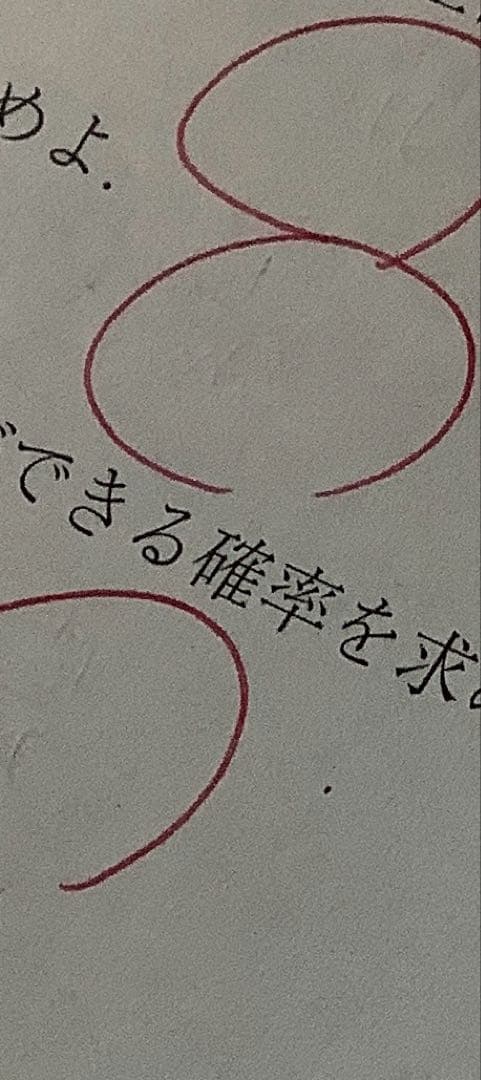 めよ.
できる確率を求